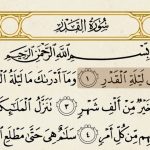 سُورَةُ القَدْرِ
بِسْمِ اللَّهِ الرَّحْمَٰنِ الرَّحِيمِ
لَيْلَةِ الْقَدْرِ ١ وَمَا أَدْرَىٰكَ مَا لَيْلَةُ
خَيْرٌ مِّنْ أَلْفِ شَهْرٍ ٣ تَنَزَّلُ الْمَلَٰٓئِكَةُ
مِّن كُلِّ أَمْرٍ ٤ سَلَٰمٌ هِيَ حَتَّىٰ مَطْلَعِ